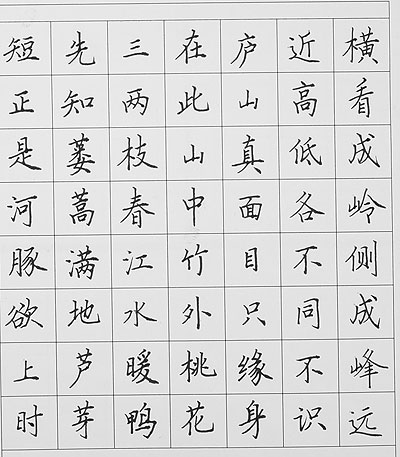 横看成岭侧成峰远
近高低各不同不识
庐山真面目只缘身
在此山中竹外桃花
三两枝春江水暖鸭
先知蒌蒿满地芦芽
短正是河豚欲上时